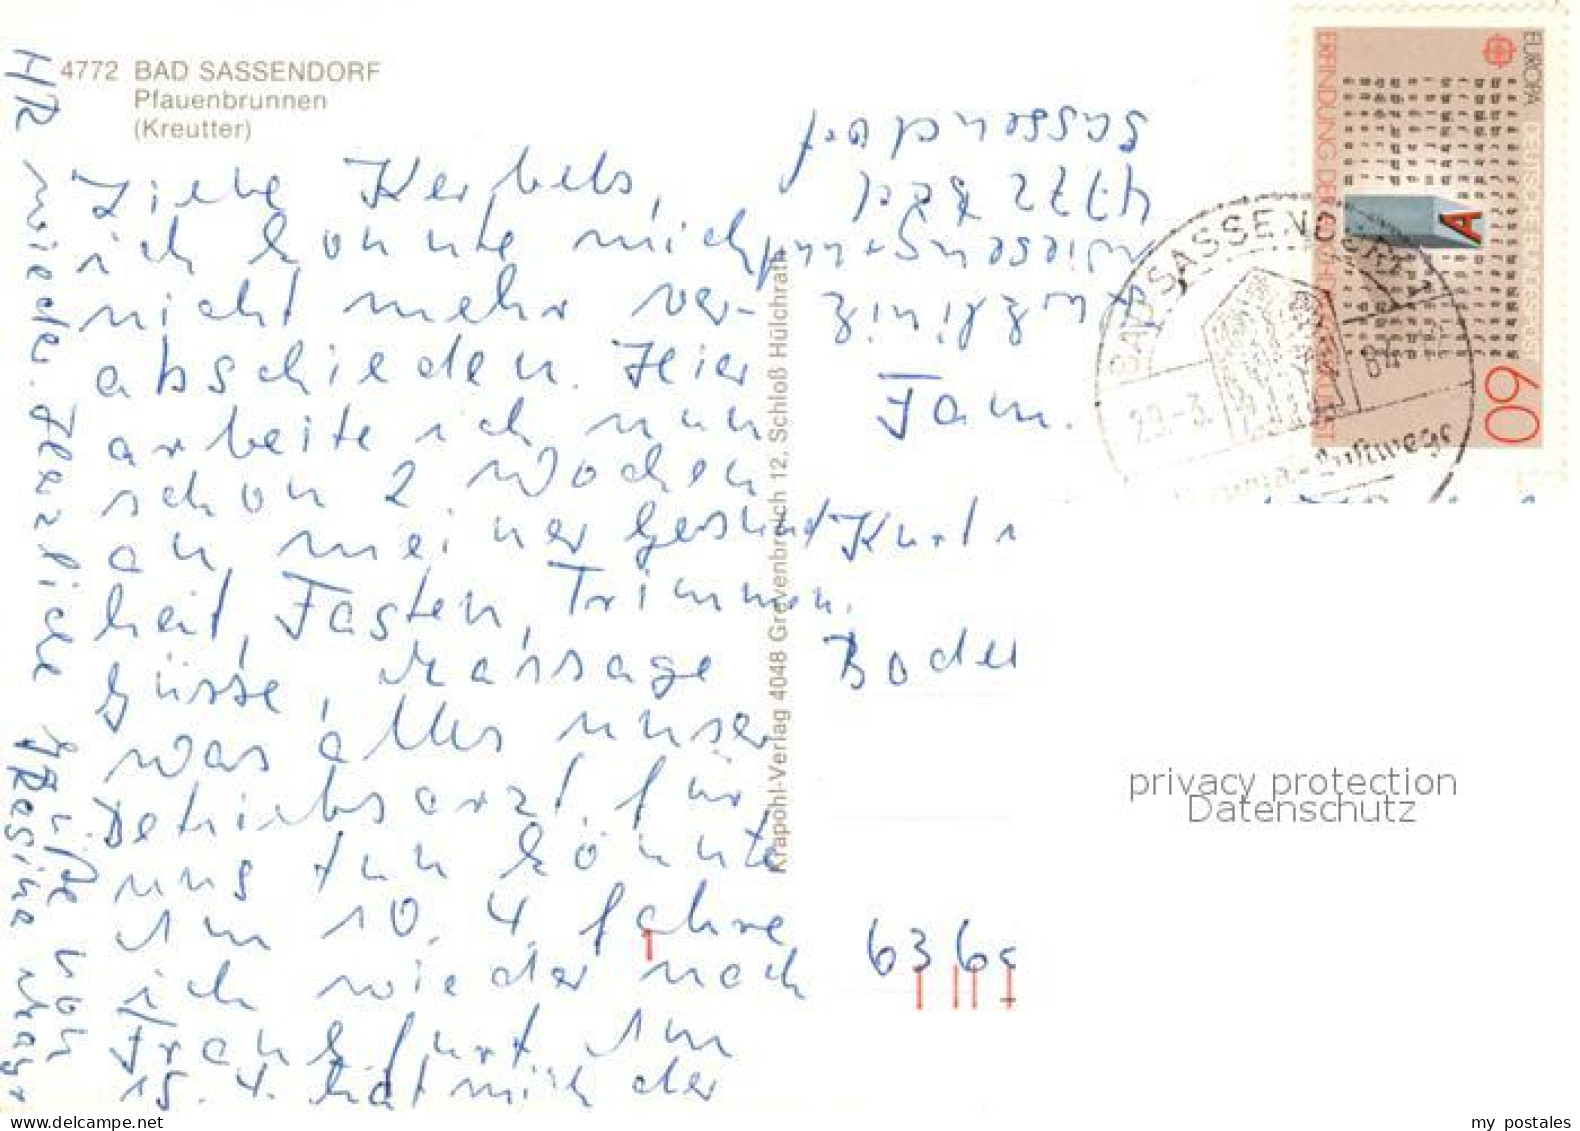 4772 BAD SASSENDORF
Pfauenbrunnen
(Kreutter)
Liebe Kerbels,
ich konnte mich
nicht mehr ver-
abschieden. Hier
arbeite ich nun
schon 2 Wochen
an meiner Gesund
heit, Fasten, Trimmen.
Güsse, Massage
was alles unser
Betriebsarzt für
uns tun könnte
Am 10. 4. fahre
ich wieder nach
Frankfurt Am
15. 4. hat mich der
HR wieder. Herzliche
Grüße von
Regina
Krapohl-Verlag 4048 Grevenbroich 12, Schloß Hülchrath
4772 Bad
Sassendorf
Fam.
Kurt
636
EUROPA DEUTSCHE BUNDESPOST
ERFINDUNG DER BUCHDRUCKERKUNST
A
60
BAD SASSENDORF
29.-3. 84
privacy protection
Datenschutz
my postales
www.delcampe.net